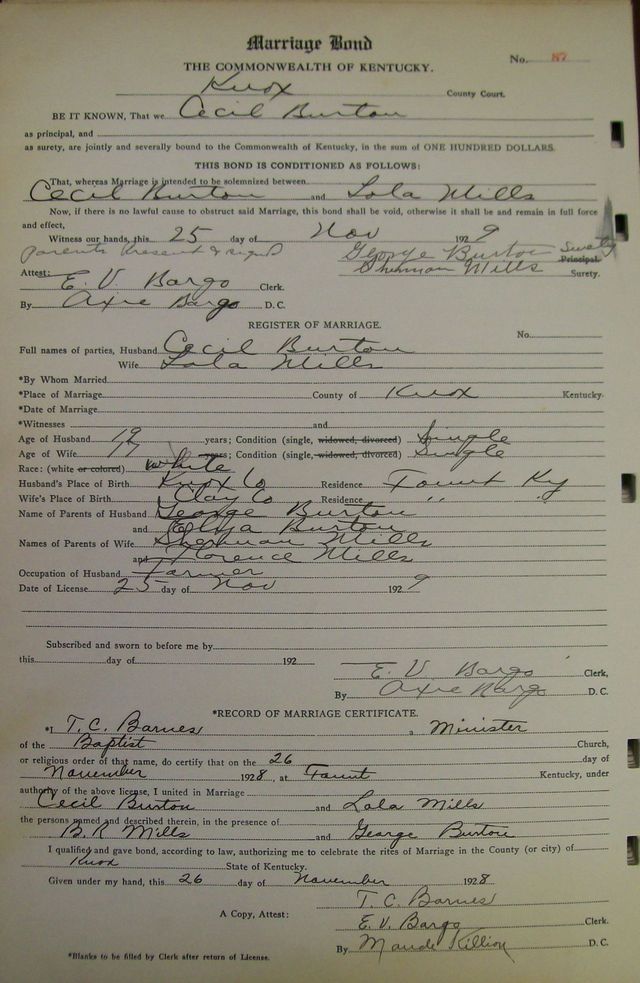 Marriage Bond
No. 87
THE COMMONWEALTH OF KENTUCKY.
Knox County Court.
BE IT KNOWN, That we Cecil Burton
as principal, and
as surety, are jointly and severally bound to the Commonwealth of Kentucky, in the sum of ONE HUNDRED DOLLARS.
THIS BOND IS CONDITIONED AS FOLLOWS:
That, whereas Marriage is intended to be solemnized between
Cecil Burton and Lola Mills
Now, if there is no lawful cause to obstruct said Marriage, this bond shall be void, otherwise it shall be and remain in full force
and effect,
Witness our hands, this 25 day of Nov 1929
Parents Present & signed George Burton Surety Principal.
Sherman Mills Surety.
Attest: E. V. Bargo Clerk.
By Axie Bargo D. C.
REGISTER OF MARRIAGE.
No.
Full names of parties, Husband Cecil Burton
Wife Lola Mills
*By Whom Married
*Place of Marriage County of Knox Kentucky.
*Date of Marriage
*Witnesses and
Age of Husband 19 years; Condition (single, widowed, divorced) Single
Age of Wife 17 years; Condition (single, widowed, divorced) Single
Race: (white or colored) White
Husband's Place of Birth Knox Co Residence Fount Ky
Wife's Place of Birth Clay Co Residence " "
Name of Parents of Husband George Burton
and Eliza Burton
Names of Parents of Wife Sherman Mills
and Florence Mills
Occupation of Husband Farmer
Date of License 25 day of Nov 1929
Subscribed and sworn to before me by
this day of 192
E. V. Bargo Clerk,
By Axie Bargo D. C.
*RECORD OF MARRIAGE CERTIFICATE.
*I T. C. Barnes a Minister
of the Baptist Church,
or religious order of that name, do certify that on the 26 day of
November 1928, at Fount Kentucky, under
authority of the above license, I united in Marriage
Cecil Burton and Lola Mills
the persons named and described therein, in the presence of
B. R Mills and George Burton
I qualified and gave bond, according to law, authorizing me to celebrate the rites of Marriage in the County (or city) of
Knox State of Kentucky.
Given under my hand, this 26 day of November 1928
T. C. Barnes
A Copy, Attest: E. V. Bargo Clerk.
By Maude Killion D. C.
*Blanks to be filled by Clerk after return of License.